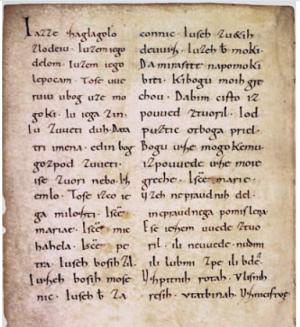 Iazze zaglagolo
zlodeiu. Iuzem iego
delom. Iuzem iego
lepocam. Tose uue
ruiu ubog uze mo
goki. Iu iega zin.
Iu zuueti duh. Da ta
tri imena. edin bog
gozpod zuueti.
ise zuori nebo. Isz
emlo. Tose izco ie
ga milosti. Iscē
mariae. Iscē mic
hahela. Iscē pe
tra. Iuseh bosih zil.
Iuseh bosih mose
nic. Iuseh b. za
connic. Iuseh zuetih
deuuiz. Iuzeh b. moki.
Da mi rasite na pomoki
biti. Kibogu moih gre
chou. Da bim cisto iz
pouued ztuoril. Iod
puztic otboga priel.
Bogu uze mogokemu
izpouuede uze moie
greche. Iscē marie.
uzeh nepraudnih del.
inepraudnega pomislena.
Ese iesem uuede ztuo
ril. ili neuuede. nudmi
ili lubmi zpe ili bde.
Uzpitnih rotah. Vlisnih
resih. Vtatbinah.